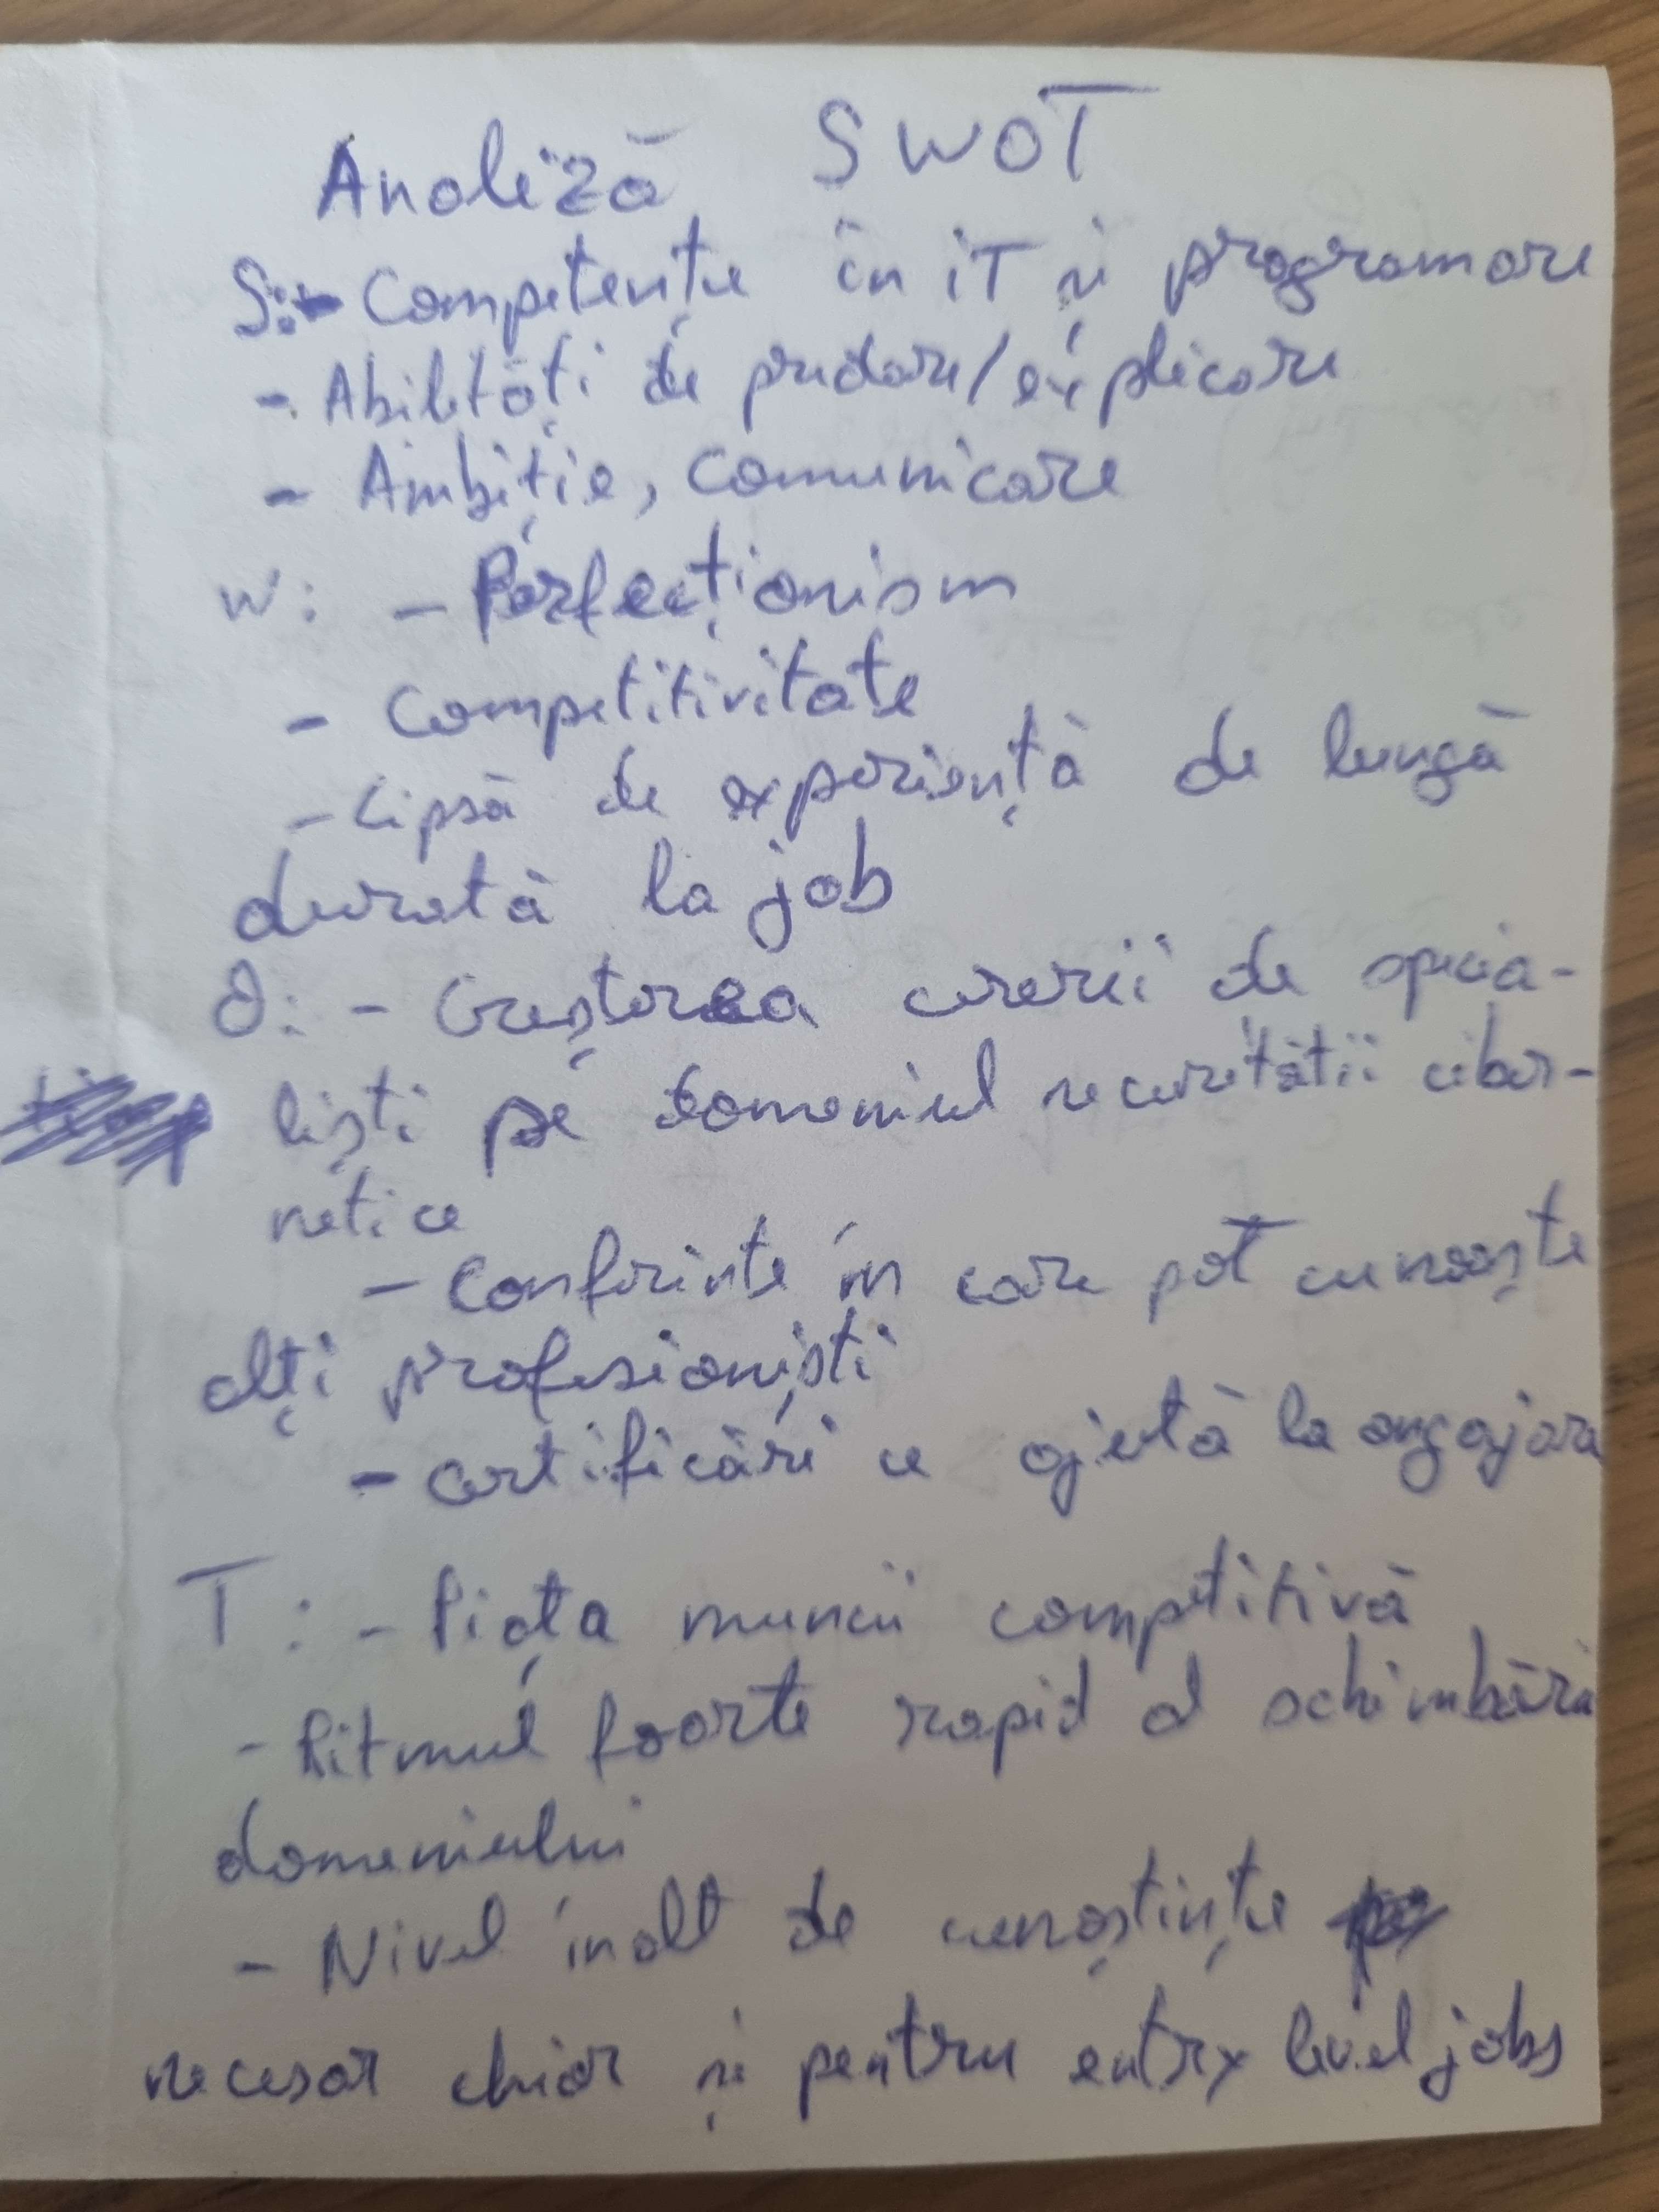 Analiză SWOT
S: - Competențe în iT și programare
- Abilități de predare/explicare
- Ambiție, comunicare
W: - Perfecționism
- Competitivitate
- Lipsă de experiență de lungă
durată la job
O: - Creșterea cererii de specia-
liști pe domeniul securității ciber-
netice
- Conferinte în care pot cunoaște
alți profesioniști
- certificări ce ajută la angajare
T: - Piața muncii competitivă
- Ritmul foarte rapid al schimbării
domeniului
- Nivel inalt de cunoștințe
necesar chiar și pentru entry level jobs